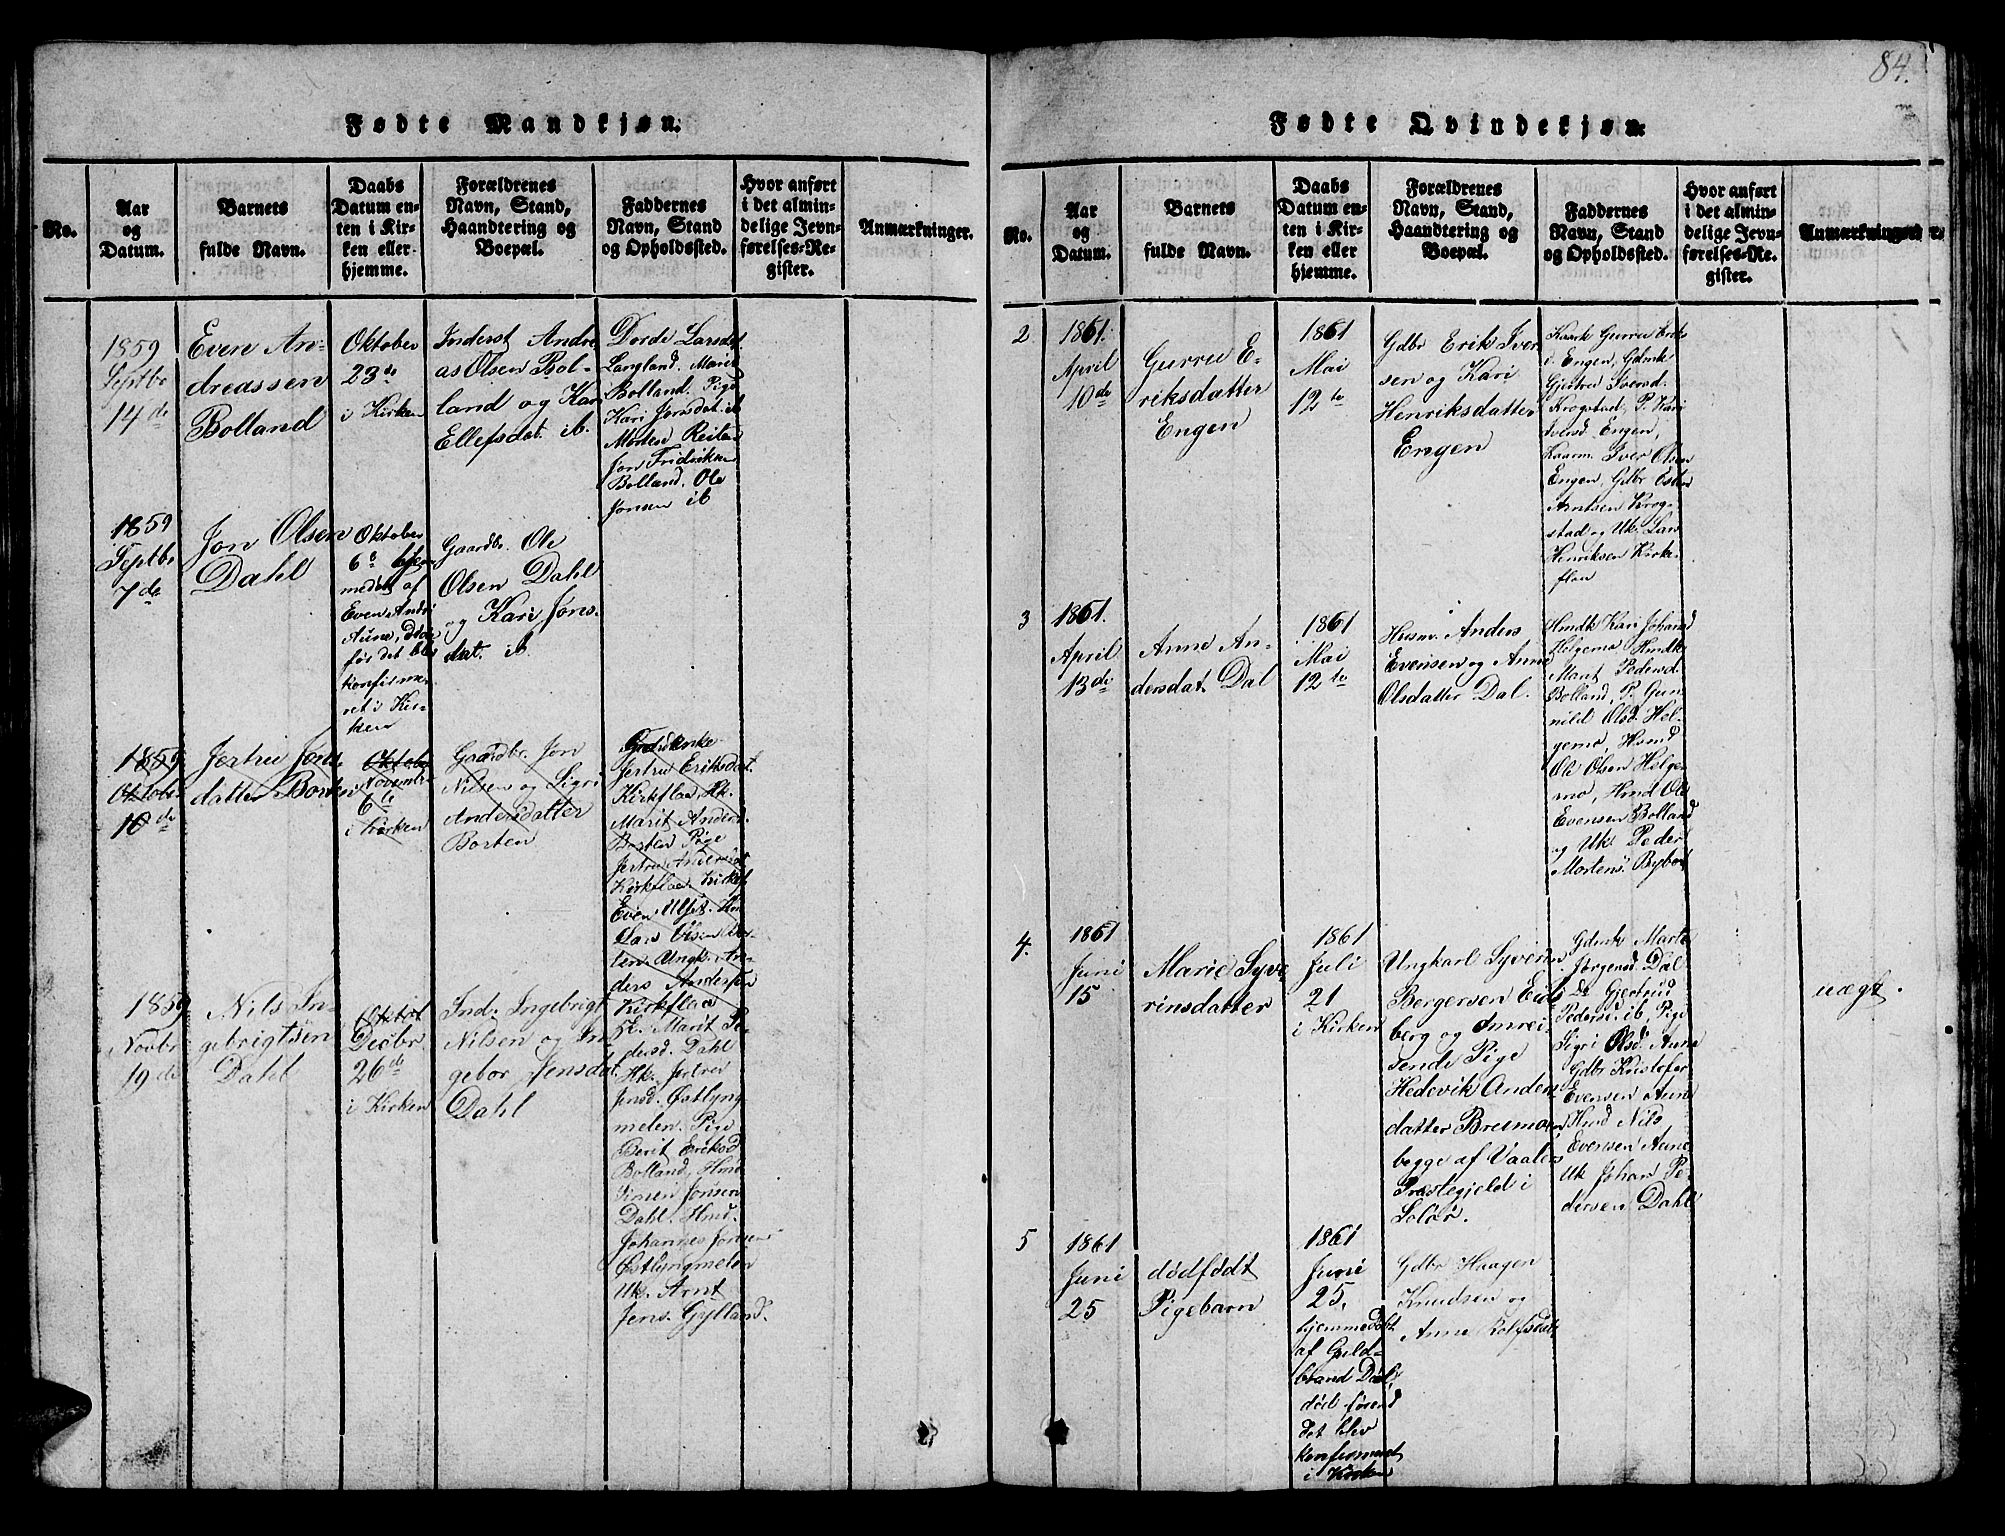 84.
Fødte Mandkjøn.
No.
Aar
og
Datum.
Barnets
fulde Navn.
Daabs
Datum en-
ten i Kir-
ken eller
hjemme.
Forældrenes
Navn, Stand,
Haandtering og
Boepæl.
Faddernes
Navn, Stand
og Opholdssted.
Hvor anført
i det almin-
delige Jevn-
førelses-Re-
gister.
Anmærkninger.
1859
Septbr
14de
Even An-
dreassen
Bolland
Oktober
23de
i Kirken
Inderst Andre
as Olsen Bol-
land og Kari
Ellefsdat. ib.
Dorde Larsdat
Langland. Marit
Bolland. Pige
Kari Jonsdat. ib
Morten Reitan
Jon Fridriksen
Bolland. Ole
Jonsen ib
1859
Septbr
7de
Jon Olsen
Dahl
Oktober
6te hjem
medøbt af
Even Andr
Aune,
før det blev
konfirme-
ret i Kir-
ken
Gaardbr. Ole
Olsen Dahl
og Kari Jons-
dat. ib.
1859
Oktober
10de
Jertru Jons
datter Borten
Oktober
November
6te
i Kirken
Gaardbr. Jon
Nilsen og Sigri
Andersdatter
Borten
Jertru Eriksdat.
Kirkflaa, Hk.
Marit Andersd.
Borten Pige
Jertru Andersdat
Kirkflaa. Kirkes
Even
Lars Olsen Bor-
ten. Ungk. An-
ders Andersen
Kirkflaa
1859
Novbr
19de
Nils In-
gebrigtsen
Dahl
Oktob
Decbr.
26de
i Kirken
Ind. Ingebrigt
Nilsen og In-
gebor Jensdat
Dahl
E. Marit Pe-
dersd. Dahl
Hk. Jertru
Jensd. Østlyng
melen. Pige
Berit Eriksd
Bolland, Hmd
Simen Jonsen
Dahl. Hmd.
Johannes Jonsen
Østlyngmelen
Uk. Arnt
Jens. Gylland.
Fødte Qvindekjøn.
No.
Aar
og
Datum.
Barnets
fulde Navn.
Daabs
Datum en-
ten i Kir-
ken eller
hjemme.
Forældrenes
Navn, Stand,
Haandtering og
Boepæl.
Faddernes
Navn, Stand
og Opholdssted.
Hvor anført
i det almin-
delige Jevn-
førelses-Re-
gister.
Anmærkninger.
2
1861.
April
10de
Gurru E-
riksdatter
Engen
1861
Mai
12te
Gdbr Erik Iver
sen og Kari
Henriksdatter
Engen
Kaark Gurru Erks
i Engen, Gdmk
Gjertru Iversd.
Krogstad, P. Kari
Iversd Engen,
Kaarm. Iver Olsen
Engen, Gdbr Østen
Arntsen Krog-
stad og Uk. Lars
Henriksen Kirke-
flaa
3
1861.
April
13de
Anne An-
dersdat Dal
1861
Mai
12te
Husm. Anders
Evensen og Anne
Olsdatter Dal.
Hmdk Kari Johansd
Helgemo Hmdk
Marit Pedersd.
Bolland, P. Gun
nild Olsd. Hel-
gemo, Husmd
Ole Olsen Helge
mo, Hmd Ole
Evensen Bolland
og Uk Peder
Mortens. Bybort
4.
1861
Juni
15
Marie Syve
rinsdatter
1861
Juli
21
i Kirken
Ungkarl Syverin
Bergersen Eids
berg og Omrei-
sende Pige
Hedevik Anders
datter Bremoen
begge af Vaalers
Præstegjeld i
Solør.
Gdmk Marte
Jørgensd. Dal
Do Gjertrud
Pedersd. ib, Pige
Sigri Olsd. Aune
Gdbr Kristofer
Evensen Aune
Hmd Nils
Evensen Aune
Uk Johan Pe-
dersen Dahl
uægt.
5
1861
Juni
25
dødfødt
Pigebarn
1861
Juni
25.
hjemmedøbt
af Guld-
brand Dal,
død førend
det blev
konfirmeret
i Kirken
Gdbr Haagen
Knudsen og
Anne Rolfsdat